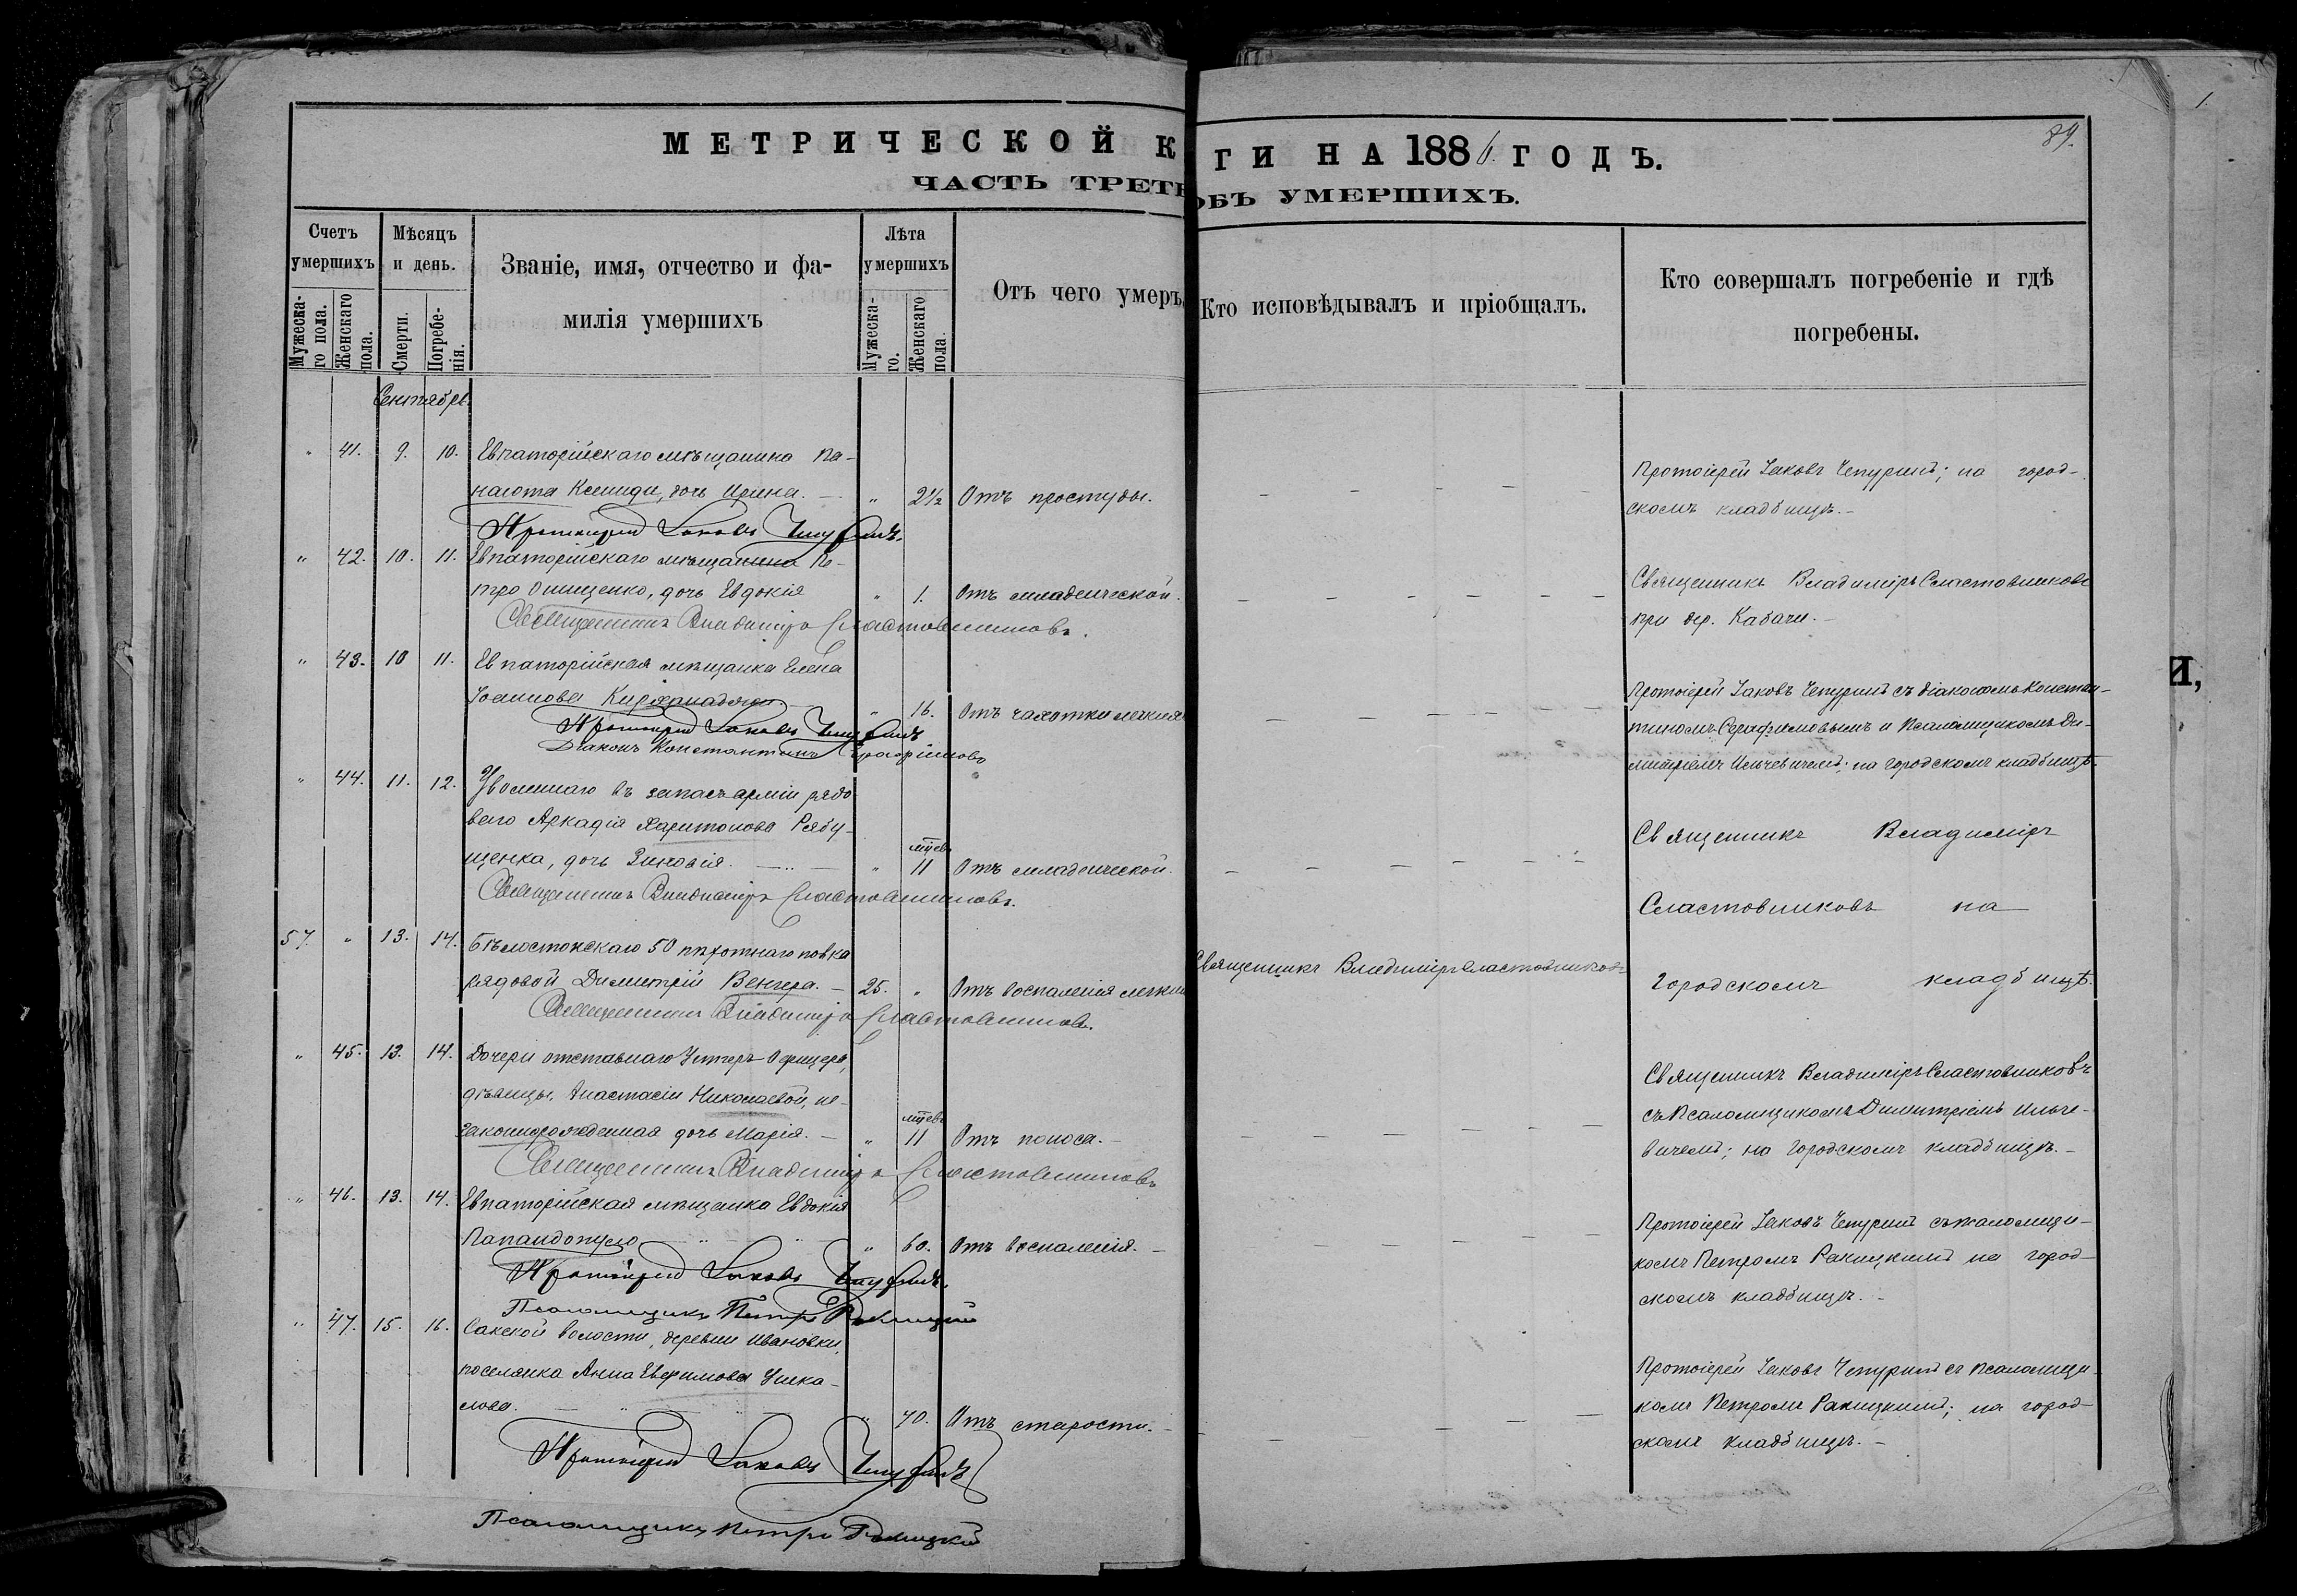 МЕТРИЧЕСКОЙ К
ГИ НА 1886. ГОДЪ.
89.
1.
ЧАСТЬ ТРЕТЬ
ОБЪ УМЕРШИХЪ.
Счетъ умершихъ
Мѣсяцъ и день.
Званіе, имя, отчество и фа-
милія умершихъ
Лѣта умершихъ
Отъ чего умеръ.
Кто исповѣдывалъ и пріобщалъ.
Кто совершалъ погребеніе и гдѣ
погребены.
Мужеска-
го пола.
Женскаго
пола.
Смерти.
Погребе-
нія.
Мужеска-
го.
Женскаго
пола.
Сентябрь.
" 41. 9. 10. Евпаторійскаго мѣщанина Па-
нагота дочь Ирина. — " 2½ Отъ простуды.
Протоіерей Іаковъ Чепуринъ; на город-
скомъ кладбищѣ. —
Протоіерей Іаковъ Чепуринъ.
" 42. 10. 11. Евпаторійскаго мѣщанина Пе-
тра Онищенко, дочь Евдокія " 1. Отъ младенческой.
Священникъ Владиміръ Сластовниковъ
при дер. Кабачи. —
Священникъ Владиміръ Сластовниковъ.
" 43. 10 11. Евпаторійская мѣщанка Елена
Іоаннова " 16. Отъ чахотки легкихъ
Протоіерей Іаковъ Чепуринъ съ діакономъ Констан-
тиномъ Серафимовымъ и Псаломщикомъ Ди-
митріемъ Ильчевичемъ; на городскомъ кладбищѣ.
Протоіерей Іаковъ Чепуринъ
Діаконъ Константинъ Серафимовъ
" 44. 11. 12. Уволеннаго въ запасъ арміи рядо-
ваго Аркадія Харитонова Рябу-
щенка, дочь Зиновія. — " мцевъ 11 Отъ младенческой.
Священникъ Владиміръ
Сластовниковъ на
Городскомъ кладбищѣ.
Священникъ Владиміръ Сластовниковъ.
57. " 13. 14. Бѣлостокскаго 50 пѣхотнаго полка
рядовой Димитрій Венгера. — 25. " Отъ воспаленія легкихъ
Священникъ Владиміръ Сластовниковъ
Священникъ Владиміръ Сластовниковъ.
" 45. 13. 14. Дочери отставнаго Унтеръ-Офицера,
дѣвицы, Анастасіи Николаевой, не-
законнорожденная дочь Марія. — " мцевъ 11 Отъ поноса. —
Священникъ Владиміръ Сластовниковъ
съ Псаломщикомъ Димитріемъ Ильче-
вичемъ; на городскомъ кладбищѣ. —
Священникъ Владиміръ Сластовниковъ
" 46. 13. 14. Евпаторійская мѣщанка Евдокія
Папандопуло " 60. Отъ воспаленія. —
Протоіерей Іаковъ Чепуринъ съ псаломщи-
комъ Петромъ Ракицкимъ на город-
скомъ кладбищѣ. —
Протоіерей Іаковъ Чепуринъ.
Псаломщикъ Петръ Ракицкій
" 47. 15. 16. Сакской волости, деревни Ивановки,
поселянка Анна Евфимова Ушка-
лова. — " 70. Отъ старости. —
Протоіерей Іаковъ Чепуринъ съ псаломщи-
комъ Петромъ Ракицкимъ; на город-
скомъ кладбищѣ. —
Протоіерей Іаковъ Чепуринъ
Псаломщикъ Петръ Ракицкій
И,